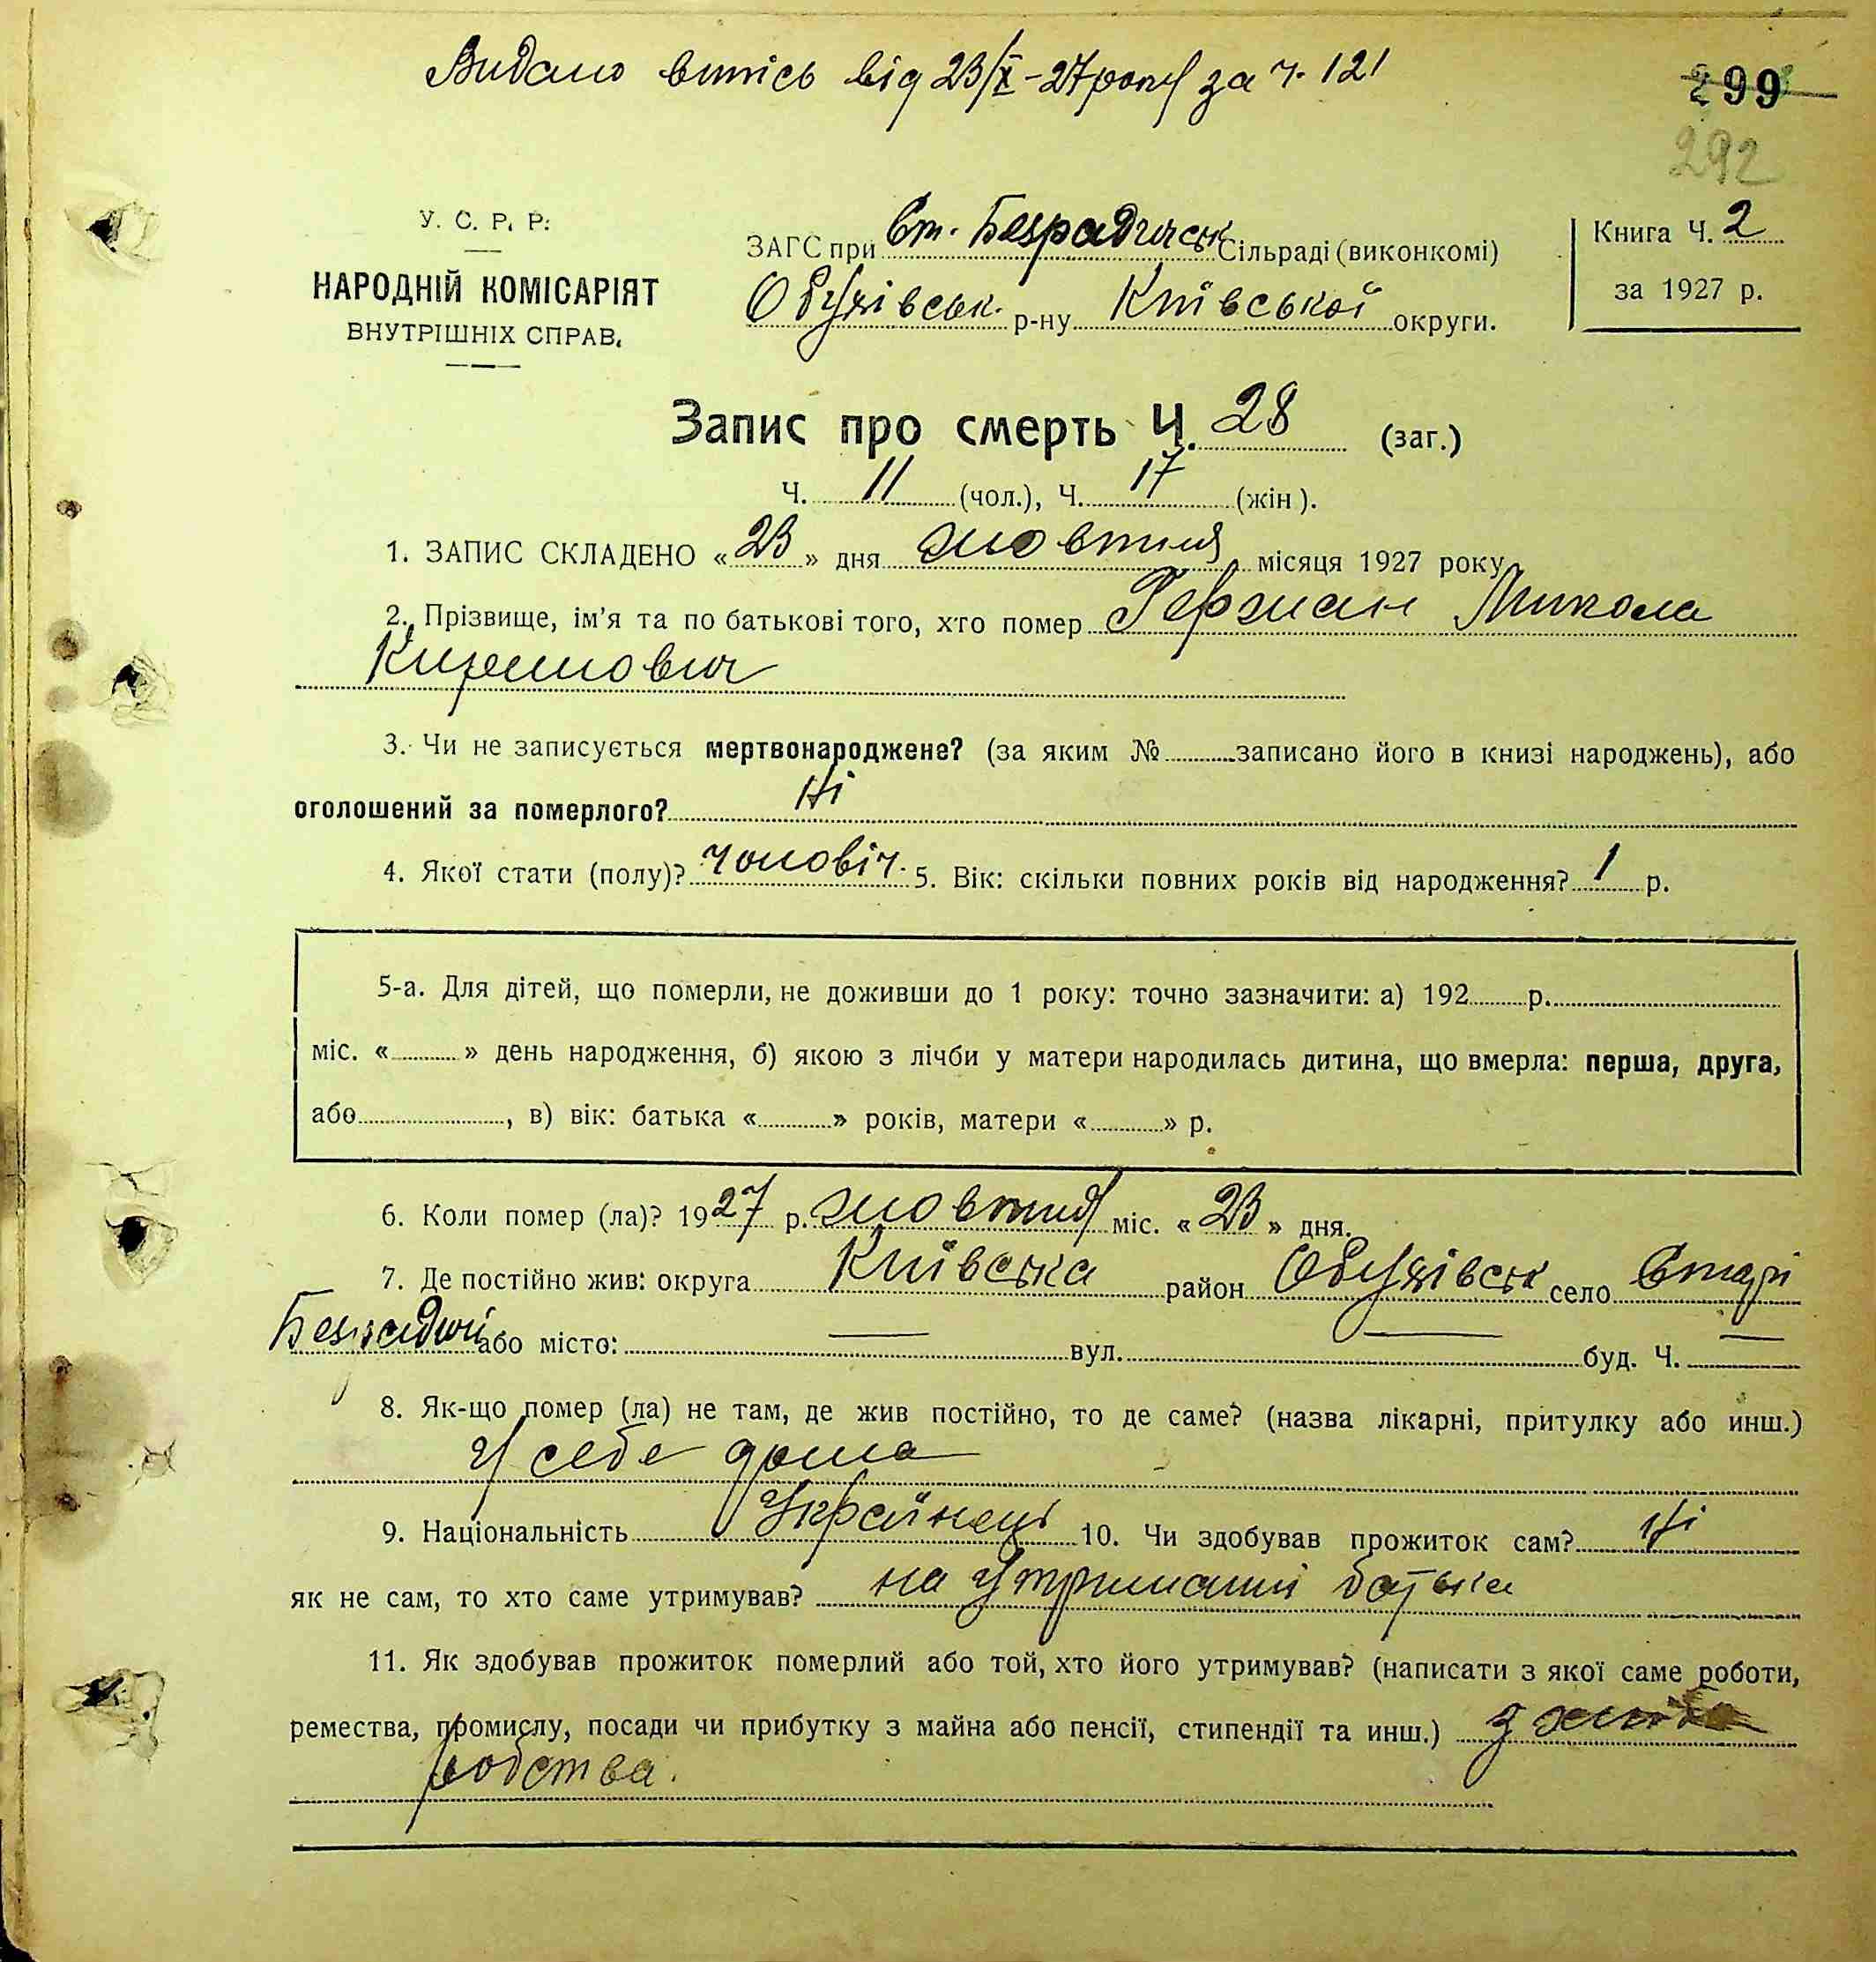 Видано витісь від 23/X-27 року за ч. 121
299
292
У. С. Р. Р.
НАРОДНІЙ КОМІСАРІЯТ
ВНУТРІШНІХ СПРАВ.
ЗАГС при Ст. Безрадичськ Сільраді (виконкомі)
Обухівськ. р-ну Київської округи.
Книга Ч. 2
за 1927 р.
Запис про смерть Ч. 28 (заг.)
Ч. 11 (чол.), Ч. 17 (жін).
1. ЗАПИС СКЛАДЕНО «23» дня жовтня місяця 1927 року
2. Прізвище, ім'я та по батькові того, хто помер Герман Микола
Кирилович
3. Чи не записується мертвонароджене? (за яким № записано його в книзі народжень), або
оголошений за померлого? Ні
4. Якої стати (полу)? чоловіч. 5. Вік: скільки повних років від народження? 1 р.
5-а. Для дітей, що померли, не доживши до 1 року: точно зазначити: а) 192 р.
міс. « » день народження, б) якою з лічби у матери народилась дитина, що вмерла: перша, друга,
або , в) вік: батька « » років, матери « » р.
6. Коли помер (ла)? 1927 р. жовтня міс. «23» дня.
7. Де постійно жив: округа Київська район Обухівськ село Старі
Безрадичі або місто: — вул. — буд. Ч. —
8. Як-що помер (ла) не там, де жив постійно, то де саме? (назва лікарні, притулку або инш.)
У себе дома
9. Національність Українець 10. Чи здобував прожиток сам? Ні
як не сам, то хто саме утримував? на утриманні батька
11. Як здобував прожиток померлий або той, хто його утримував? (написати з якої саме роботи,
ремества, промислу, посади чи прибутку з майна або пенсії, стипендії та инш.) з хліба
робства.